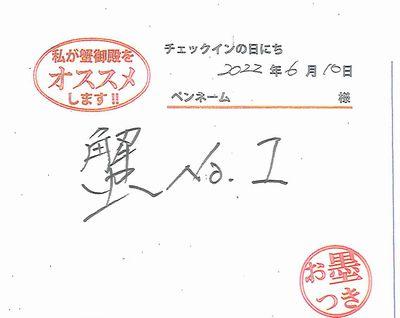 私が蟹御殿を
オススメ
します!!
チェックインの日にち
2022年6月10日
ペンネーム 様
蟹 No.1
お墨
つき